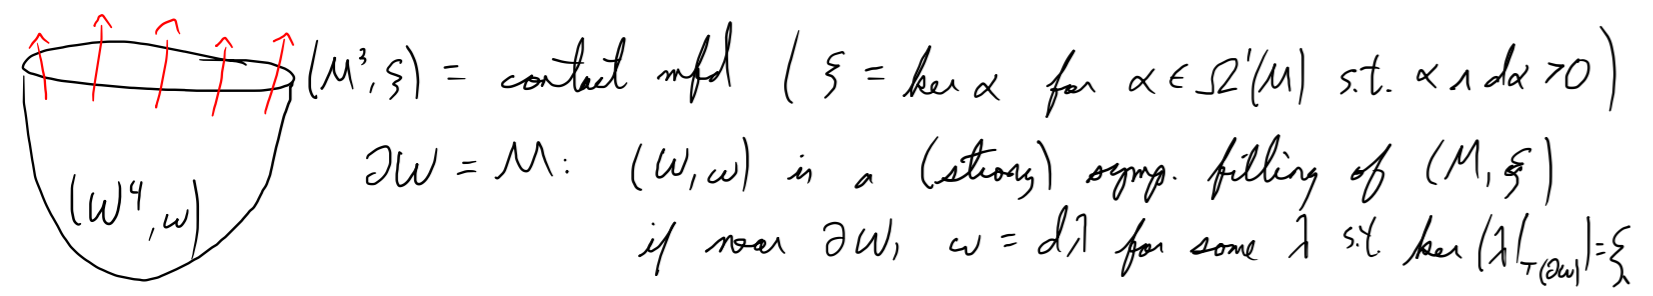 (M³, ξ) = contact mfd ( ξ = ker α for α ∈ Ω¹(M) s.t. α ∧ dα > 0 )
∂W = M: (W, ω) is a (strong) symp. filling of (M, ξ)
(W⁴, ω)
if near ∂W, ω = dλ for some λ s.t. ker (λ|_T(∂W)) = ξ